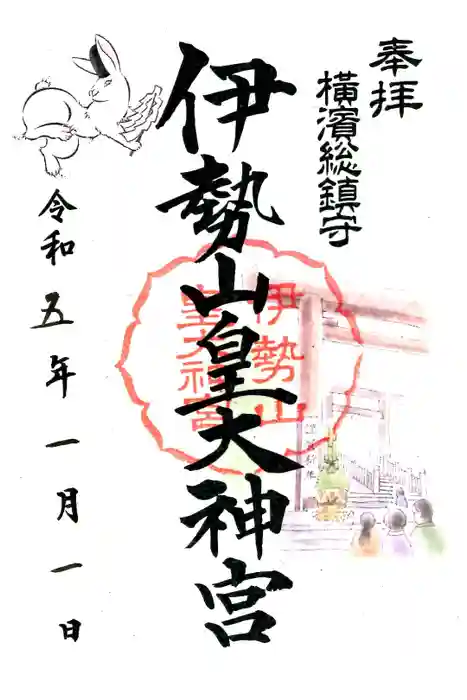 奉拝
横濱総鎮守
伊勢山皇大神宮
伊勢山
皇大神宮
令和五年一月一日